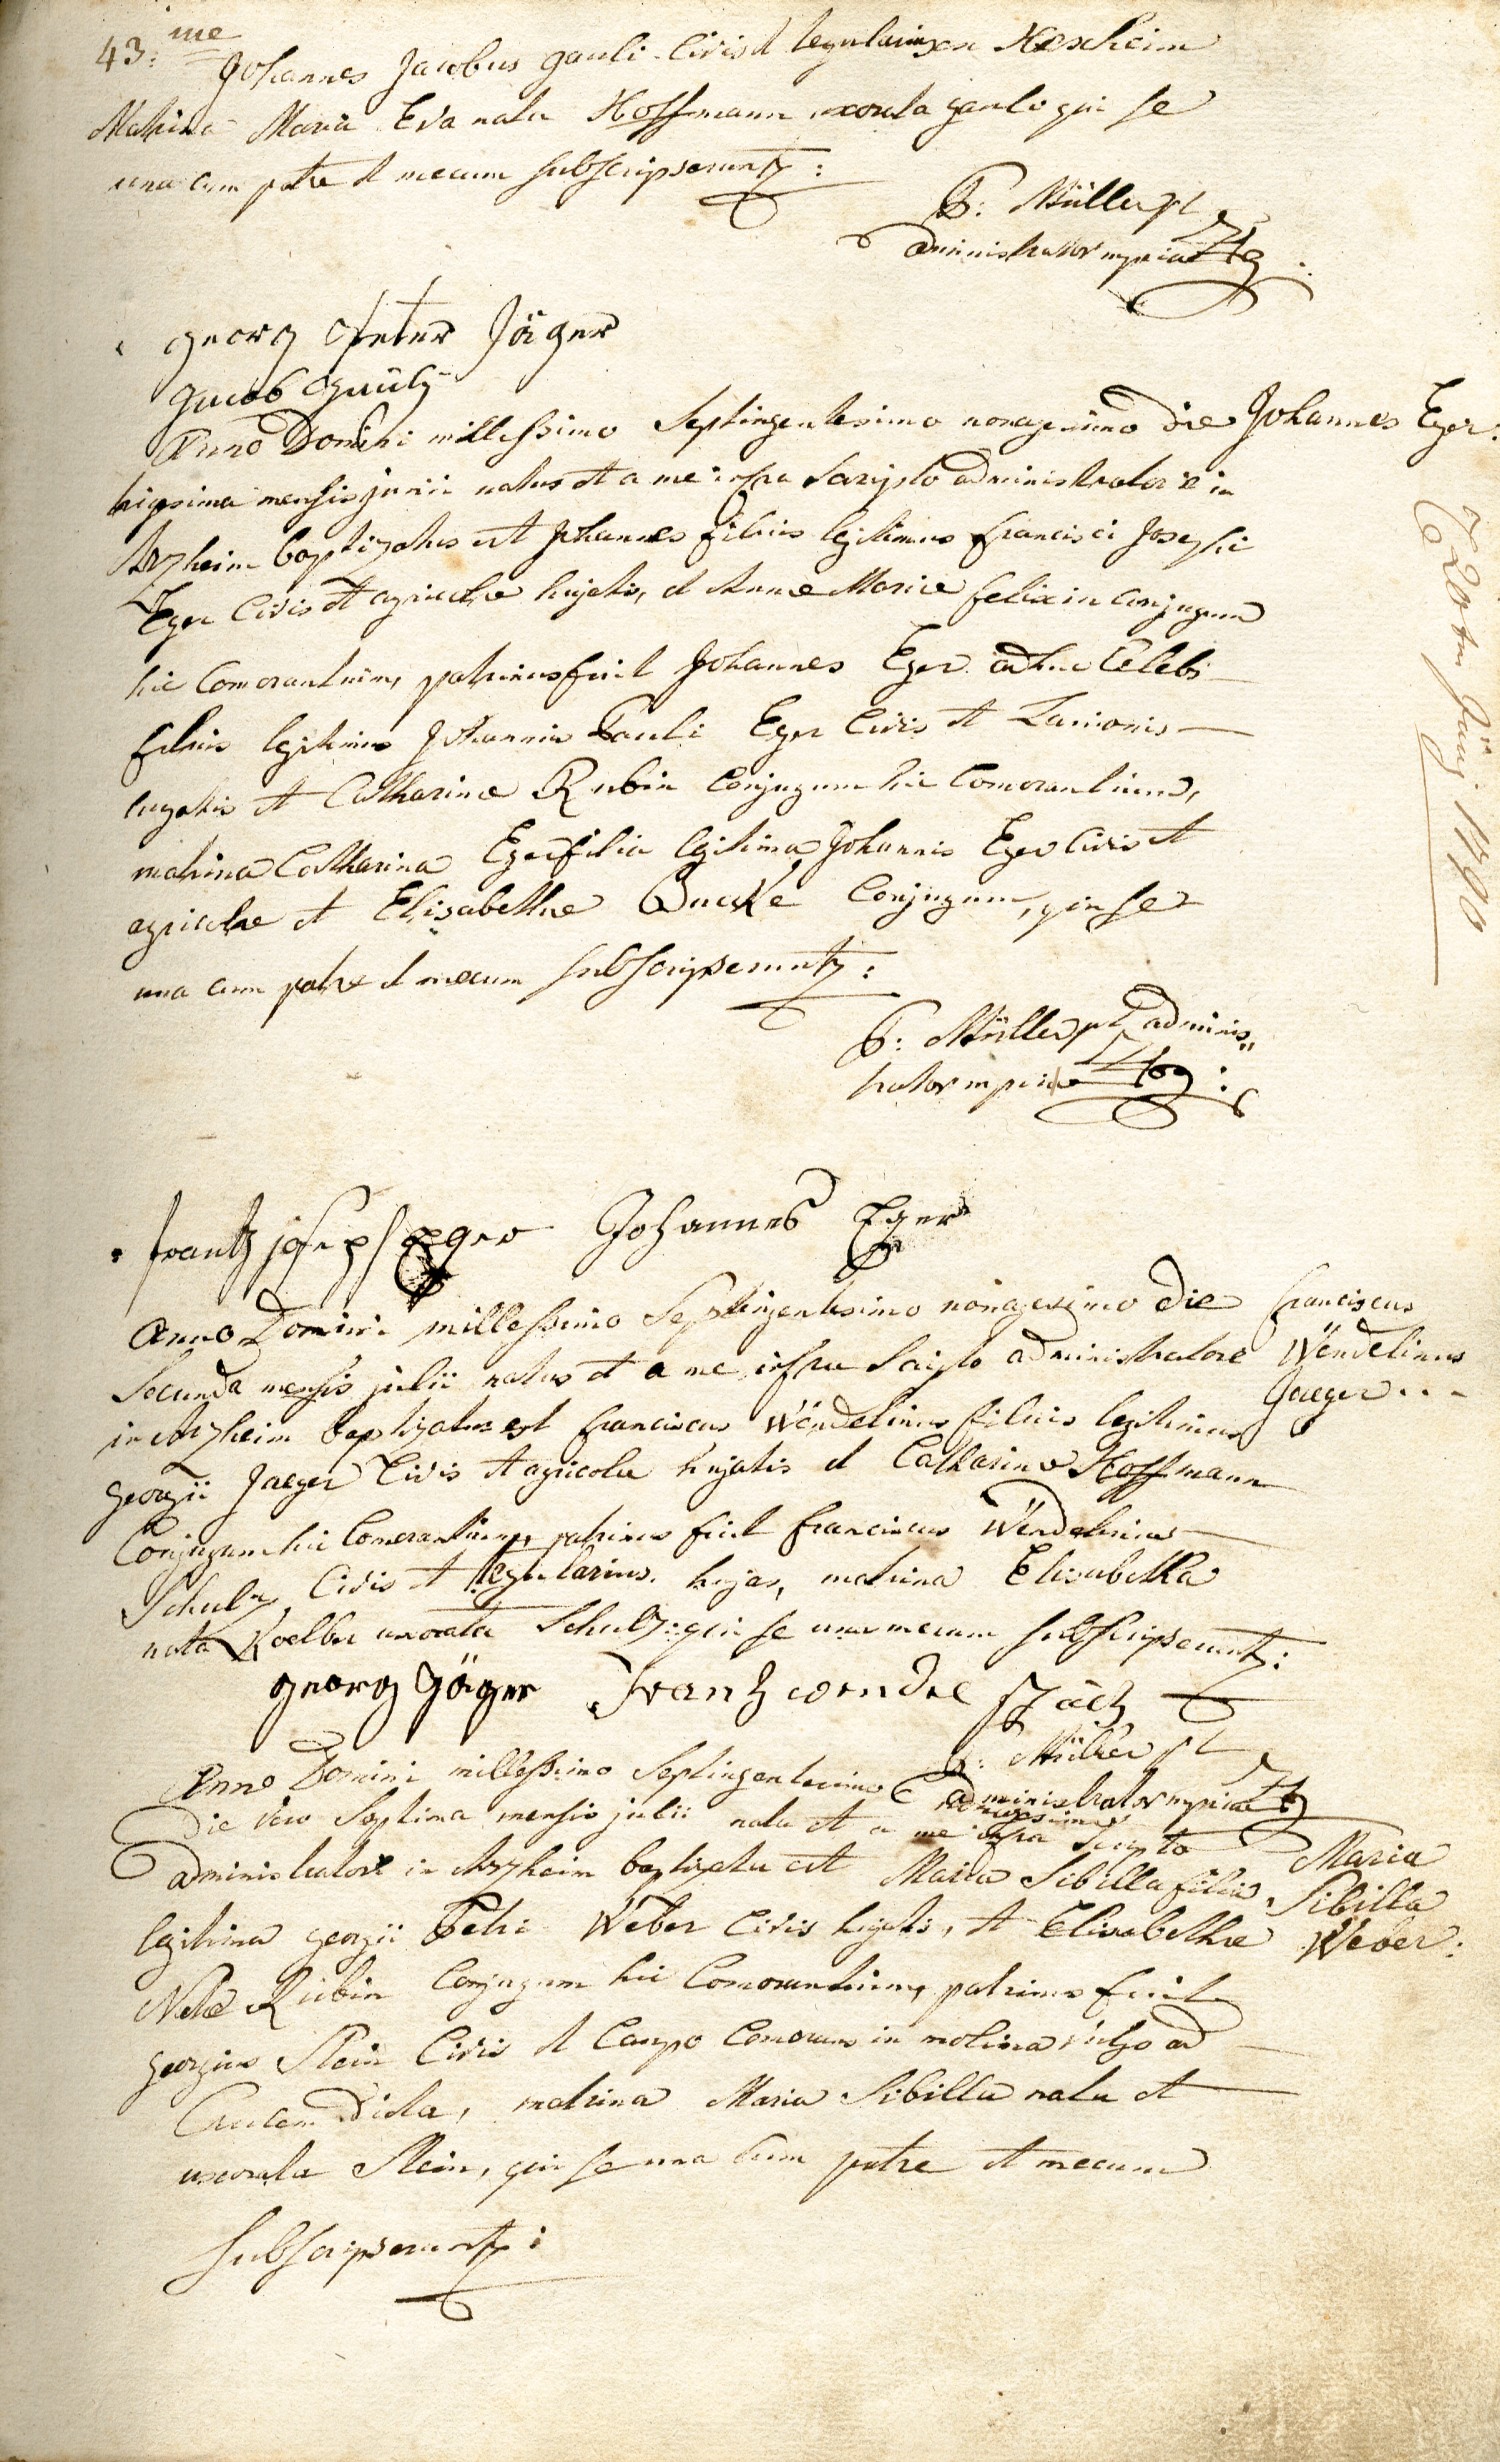 43: me
Johannes Jacobus gauli Civis et tegularius ex Herxheim
Matrina Maria Eva nata Hoffmann uxorata gauli qui se
una cum patre et mecum subscripserunt:
P: Müller pt
administrator mpria
georg peter Jäger
Jacob
Anno Domini millessimo Septingentesimo nonagesimo die
Johannes Eger:
trigesima mensis junii natus et a me infra Scripto administratore in
Arzheim baptizatus est Johannes filius legitimus francisci Josephi
Eger Civis et agricolae hujatis, et Annae Mariae felixin Conjugum
hic Comorantium, patrinus fuit Johannes Eger adhuc Celebs
filius legitimus Johannis Pauli Eger Civis et Lanionis
hujatis et Catharinae Rubin Conjugum hic Comorantium,
matrina Catharina Eger filia legitima Johannis Eger Civis et
agricolae et Elisabethae Conjugum, qui se
una cum patre et mecum subscripserunt:
P: Müller pt adminis„
trator mpria
1790
frantz joseph Eger Johannes Eger
Anno Domini millessimo Septingentesimo nonagesimo die
franciscus
Wendelinus
Jaeger...
Secunda mensis julii natus et a me infra Scripto administratore
in Arzheim baptizatus est franciscus Wendelinus filius legitimus
georgii Jaeger Civis et agricolae hujatis et Catharinae Hoffmann
Conjugum hic Comorantium, patrinus fuit franciscus Wendelinus
Schultz, Civis et tegularius hujas, matrina Elisabetha
nata Koelber uxorata Schultz: qui se una mecum subscripserunt:
georg Jäger Frantz wendel
P: Müller pt
administrator mpria
Anno Domini millessimo Septingentesimo nonagesimo
Die vero Septima mensis julii nata et a me infra Scripto
administratore in Arzheim baptizata est Maria Sibilla filia
Maria
Sibilla
Weber:
legitima georgii Petri Weber Civis hujatis, et Elisabethae
Natae Rubin Conjugum hic Comorantium, patrinus fuit
georgius Stein Civis et Caupo Comorans in molina vulgo ad
dicta, matrina Maria Sibilla nata et
uxorata Stein, qui se una cum patre et mecum
subscripserunt: